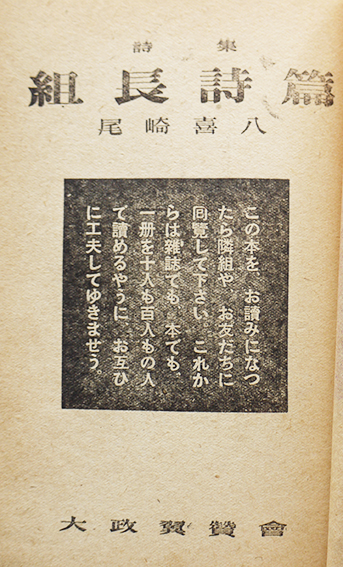 詩集
組長詩篇
尾崎喜八
この本を、お讀みになつ
たら隣組や、お友だちに
囘覽して下さい。これか
らは雜誌でも、本でも、
一册を十人も百人もの人
で讀めるやうに、お互ひ
に工夫してゆきませう。
大政翼贊會